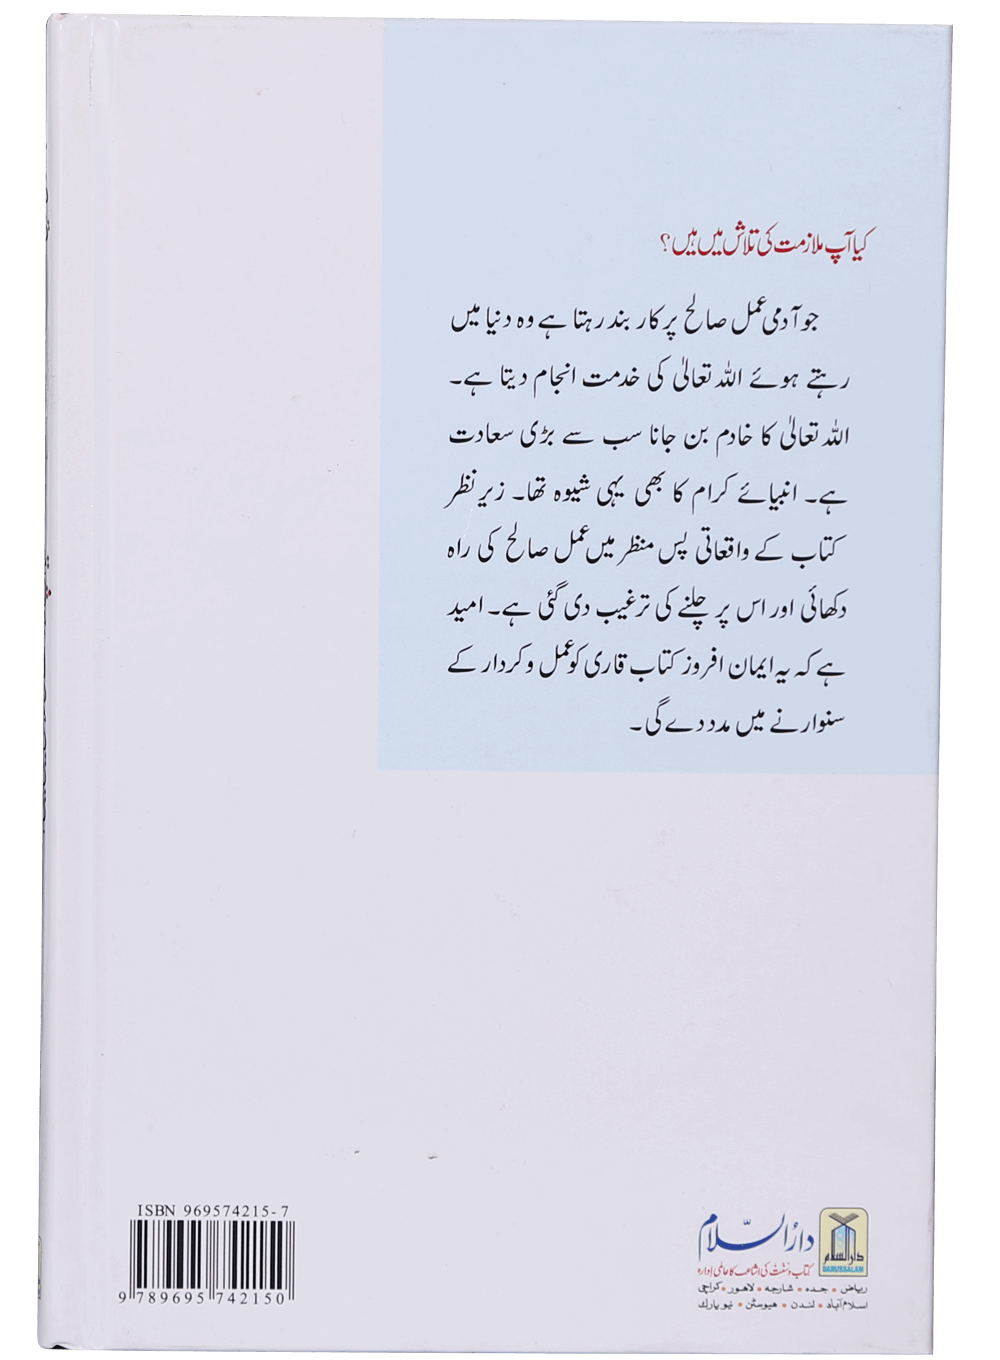 کیا آپ ملازمت کی تلاش میں ہیں؟
جو آدمی عمل صالح پر کار بند رہتا ہے وہ دنیا میں
رہتے ہوئے اللہ تعالیٰ کی خدمت انجام دیتا ہے۔
اللہ تعالیٰ کا خادم بن جانا سب سے بڑی سعادت
ہے۔ انبیائے کرام کا بھی یہی شیوہ تھا۔ زیر نظر
کتاب کے واقعاتی پس منظر میں عمل صالح کی راہ
دکھائی اور اس پر چلنے کی ترغیب دی گئی ہے۔ امید
ہے کہ یہ ایمان افروز کتاب قاری کو عمل و کردار کے
سنوارنے میں مدد دے گی۔
ISBN 969574215-7
9 789695 742150
دارُالسّلام
دارالسلام
DARUSSALAM
کتاب و سُنّت کی اشاعت کا عالمی ادارہ
ریاض • جدہ • شارجہ • لاہور • کراچی
اسلام آباد • لندن • ہیوسٹن • نیو یارک